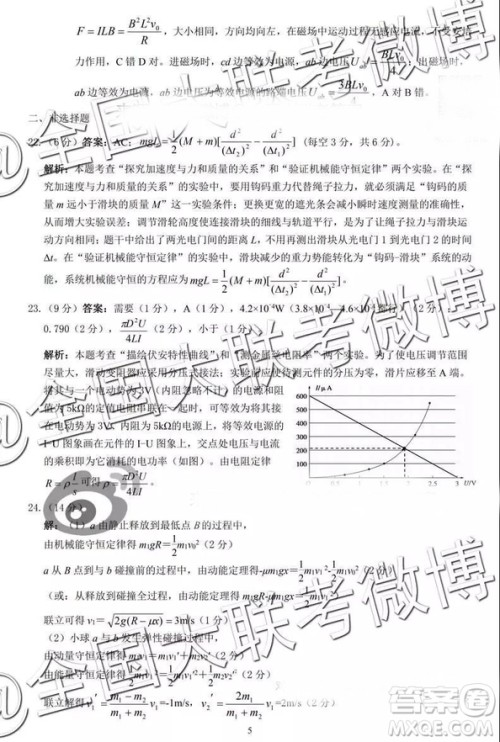 F = ILB = B²L²v₀/R，大小相同，方向均向左，在磁场中运动过程无感应电流，不受安培
力作用，C 错 D 对。进磁场时，cd 边等效为电源，
ab 边等效为电源，ab 边电压为等效电源的路端电压 U = 3BLv₀/4，A 对 B 错。
二、非选择题
22.（6分）答案：AC；mgL = 1/2 (M + m)[d²/(Δt₂)² − d²/(Δt₁)²]（每空 3 分，共 6 分）。
解析：本题考查“探究加速度与力和质量的关系”和“验证机械能守恒定律”两个实验。在“探
究加速度与力和质量的关系”的实验中，要用钩码重力代替绳子拉力，就必须使“钩码的质
量 m 远小于滑块的质量 M”这一实验条件；更宽的遮光条会减小瞬时速度的测量准确性，从
而增大实验误差；调节滑轮高度使连接滑块的细线与轨道平行，是为了让绳子拉力与滑块运
动方向相同；题干中给出了两光电门间的距离 L，不用再测出滑块从光电门 1 到光电门 2 的时间
Δt。在“验证机械能守恒定律”的实验中，滑块减少的重力势能转化为“钩码–滑块”系统的动
能，系统机械能守恒的方程应为 mgL = 1/2 (M + m)[d²/(Δt₂)² − d²/(Δt₁)²]。
23.（9 分）答案：需要（1 分），A（1 分），4.2×10⁻⁴W（3.8×10⁻⁴
0.790（2 分），πD²U/4LI（2 分），小于（1 分）
解析：本题考查“描绘伏安特性曲线”和“测金属丝电阻率”两个实验。为了使电压调节范围
尽量大，滑动变阻器应采用分压式接法；实验开始前，应使待测元件的分压为零，滑片应移至 A 端。
将其与一个电动势为 3V（内阻忽略不计）的电源和阻
值为 5kΩ的定值电阻串联在一起，可将电源和电阻等
效为电动势为 3V、内阻为 5kΩ的等效电源，将电源的
I–U 图象画在元件的 I–U 图象上，交点处电压与电流
的乘积即为它消耗的电功率（如图）。由电阻定律
ρ = R s/l 可得 ρ = πD²U/4LI
I/μA
600
500
400
300
200
100
0 0.5 1 1.5 2 2.5 3 U/V
24.（14 分）
解：（1）a 由静止释放到最低点 B 的过程中，
由机械能守恒定律得 m₁gR=1/2 m₁v₀²（2 分）
a 从 B 点到与 b 碰撞前的过程中，由动能定理得-μm₁gx=1/2 m₁v₁²-1/2 m₁v₀²（2 分）
（或：从释放到与 b 碰撞前的过程中，由动能定理得 m₁gR-μm₁gx=1/2 m₁v₁²
联立可得 v₁= √2g(R − μx) =3m/s（1 分）
（2）小球 a 与 b 发生弹性碰撞过程中，
由动量守恒定律得 m₁v₁=m₁v₁′+m₂v₂′（2 分）
由能量守恒定律得 1/2 m₁v₁²=1/2 m₁v₁′²+1/2 m₂v₂′²（2 分）
联立得 v₁′ = (m₁ − m₂)/(m₁ + m₂) v₁=-1m/s，v₂′ = 2m₁/(m₁ + m₂) v₁=2m/s（2 分）
5
@全国大联考微博
@全国大联考微博
@全国大联考微博
答案圈
MXQE.COM